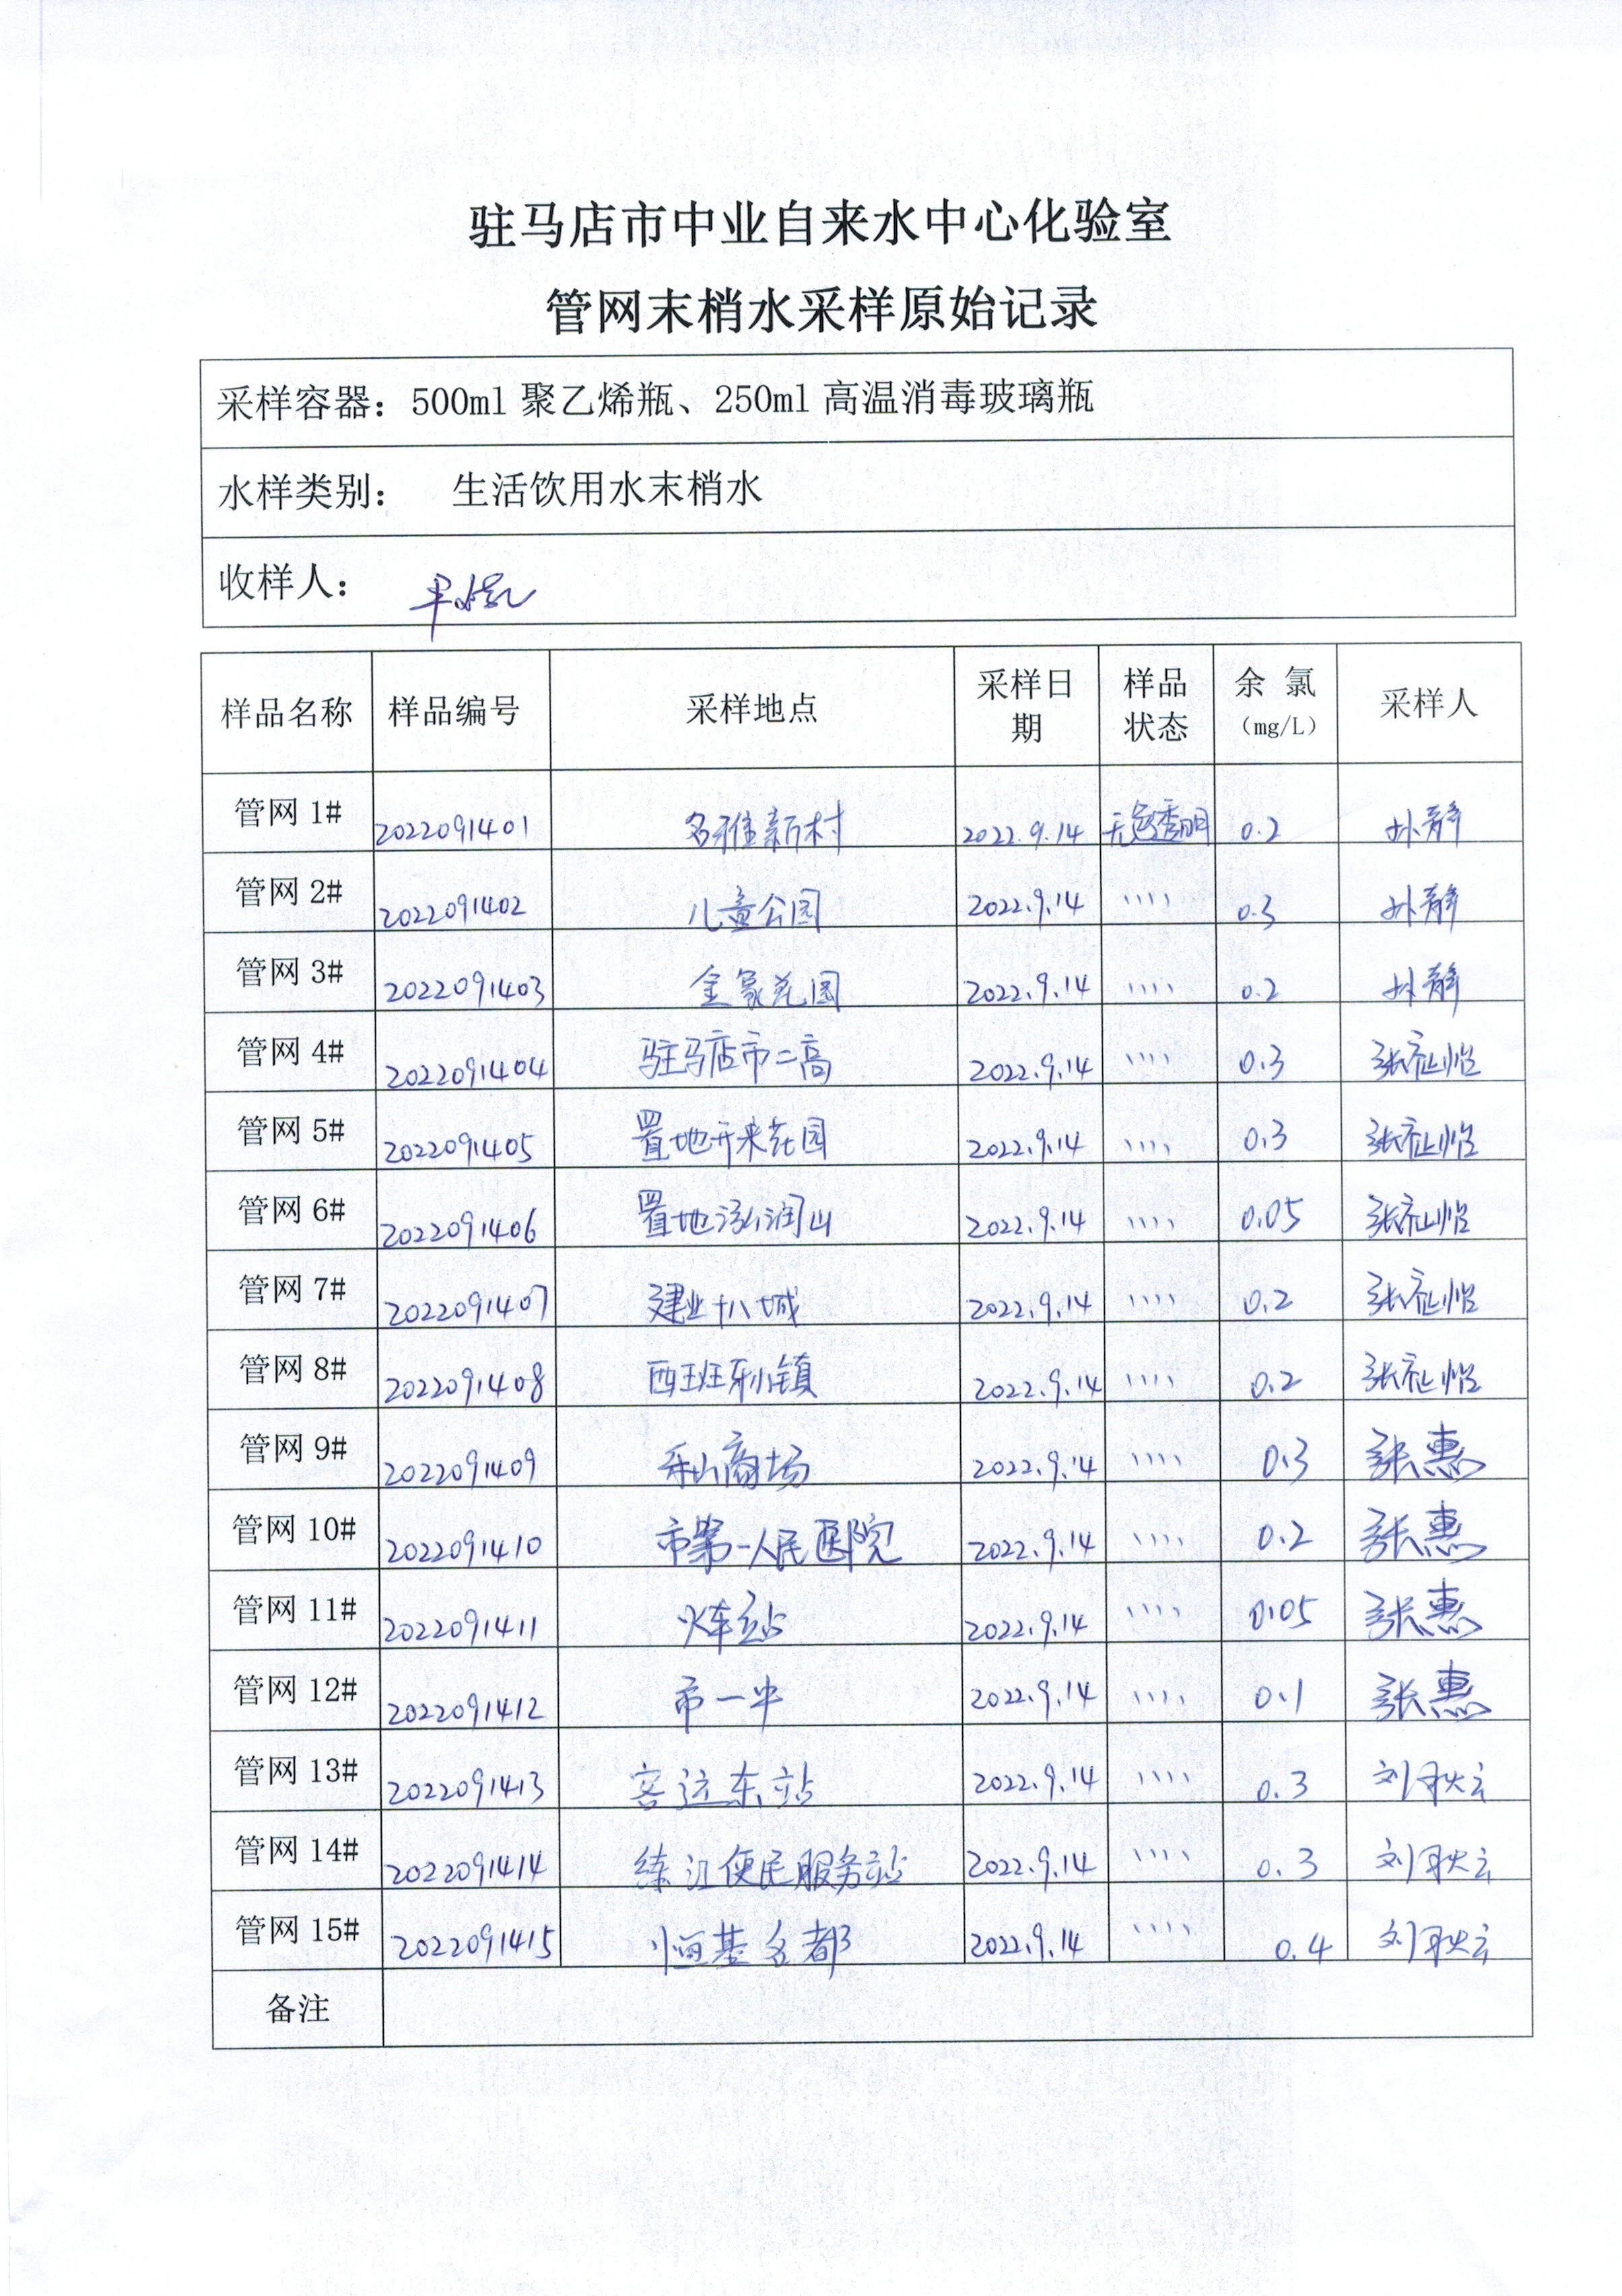 驻马店市中业自来水中心化验室
管网末梢水采样原始记录
采样容器：500ml 聚乙烯瓶、250ml 高温消毒玻璃瓶
水样类别： 生活饮用水末梢水
收样人：
样品名称 样品编号 采样地点 采样日期 样品状态 余 氯（mg/L） 采样人
管网 1# 2022091401 名雅新村 2022.9.14 无色透明 0.2 孙静
管网 2# 2022091402 儿童公园 2022.9.14 、、、、 0.3 孙静
管网 3# 2022091403 金象花园 2022.9.14 、、、、 0.2 孙静
管网 4# 2022091404 驻马店市二高 2022.9.14 、、、、 0.3 张祉怡
管网 5# 2022091405 置地开来花园 2022.9.14 、、、、 0.3 张祉怡
管网 6# 2022091406 置地泓润山 2022.9.14 、、、、 0.05 张祉怡
管网 7# 2022091407 建业十八城 2022.9.14 、、、、 0.2 张祉怡
管网 8# 2022091408 西班牙小镇 2022.9.14 、、、、 0.2 张祉怡
管网 9# 2022091409 乐山商场 2022.9.14 、、、、 0.3 张惠
管网 10# 2022091410 市第一人民医院 2022.9.14 、、、、 0.2 张惠
管网 11# 2022091411 火车站 2022.9.14 、、、、 0.05 张惠
管网 12# 2022091412 市一中 2022.9.14 、、、、 0.1 张惠
管网 13# 2022091413 客运东站 2022.9.14 、、、、 0.3 刘耿云
管网 14# 2022091414 练江便民服务站 2022.9.14 、、、、 0.3 刘耿云
管网 15# 2022091415 恒基名都 2022.9.14 、、、、 0.4 刘耿云
备注